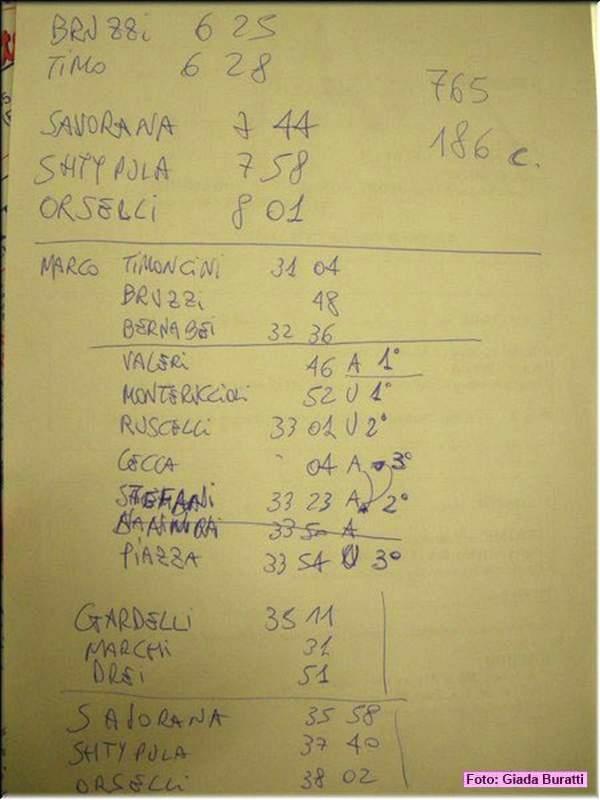 BRUZZI 6 25
TIMO 6 28
765
SAVORANA 7 44
186 c.
SHTYPULA 7 58
ORSELLI 8 01
MARCO TIMONCINI 31 04
BRUZZI 48
BERNABEI 32 36
VALERI 46 A 1°
MONTERICCIOLI 52 U 1°
RUSCELLI 33 01 U 2°
CECCA 04 A 3°
STEFANI 33 23 A 2°
33 50 A
PIAZZA 33 54 U 3°
GARDELLI 35 11
MARCHI 31
DREI 51
SAVORANA 35 58
SHTYPULA 37 40
ORSELLI 38 02
Foto: Giada Buratti